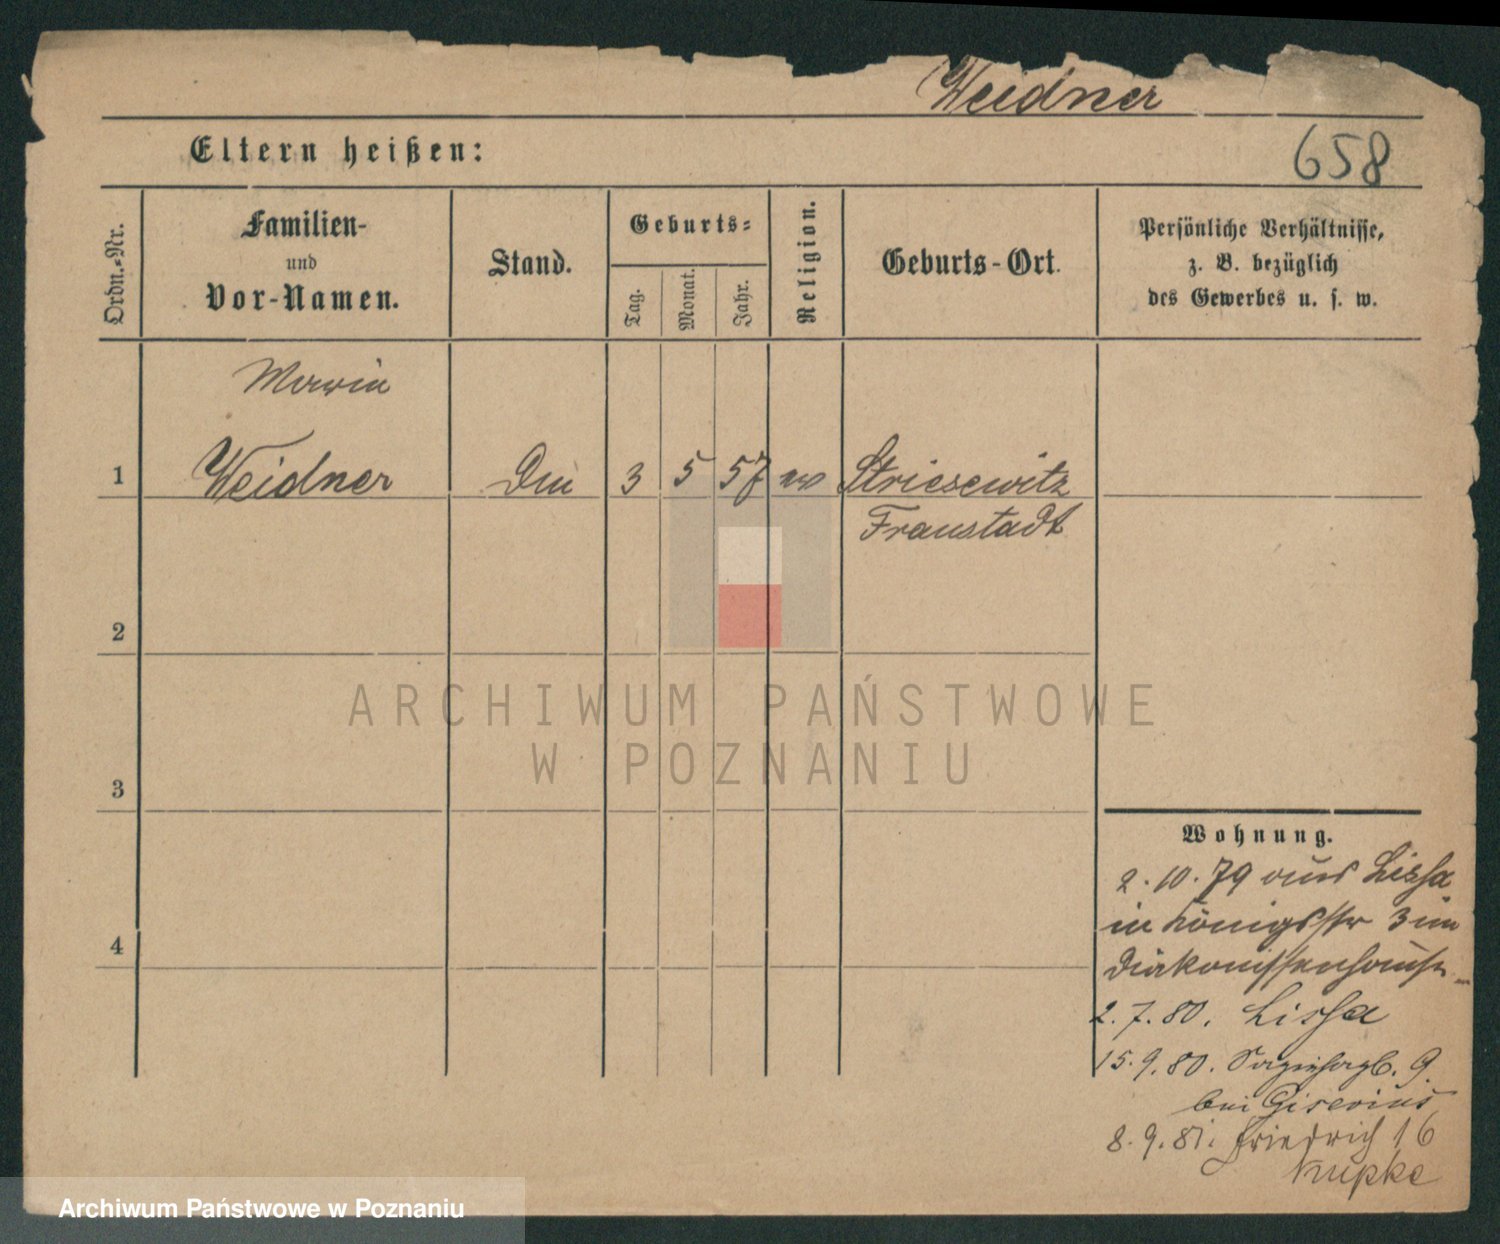 Weidner
658
Eltern heißen:
Ordn.-Nr.
Familien-
und
Vor-Namen.
Stand.
Geburts-
Tag.
Monat.
Jahr.
Religion.
Geburts-Ort.
Persönliche Verhältnisse,
z. B. bezüglich
des Gewerbes u. s. w.
Maria
1 Weidner 3 5 57 Striesewitz
Fraustadt
2
3
4
Wohnung.
2. 10. 79 aus Lissa
in Königsstr 3 im
Diakonissenhause
2. 7. 80. Lissa
15. 9. 80. 9
bei Gisevius
8. 9. 81. Friedrich 16
Krupke
ARCHIWUM PAŃSTWOWE
W POZNANIU
Archiwum Państwowe w Poznaniu